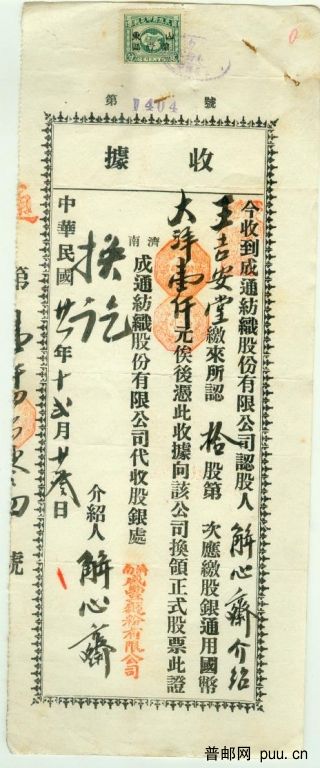 山東
第 1404 號
收據
今收到成通紡織股份有限公司認股人解心齋介紹
王吉安堂繳來所認拾股第 次應繳股銀通用國幣
大洋壹仟元俟後憑此收據向該公司換領正式股票此證
濟南成通紡織股份有限公司代收股銀處
濟南成豐麵粉有限公司
換訖
介紹人解心齋
中華民國廿一年十弍月廿叁日
第壹仟四百零四號
普邮网 puu.cn